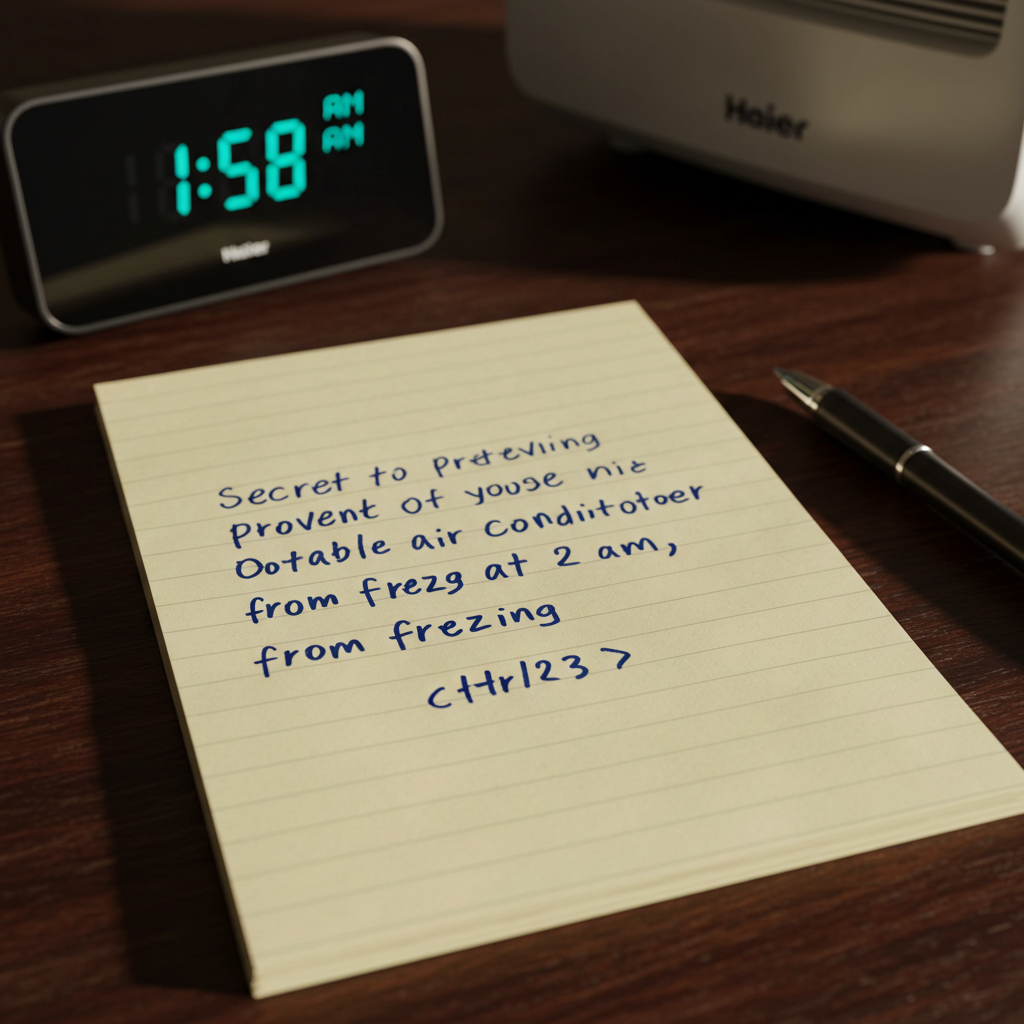 1:58 AM
AM
Haier
Haier
Secret to Pretevling
provent of youse nic
Ootable air Condiitotoer
from frezg at 2 am,
from frezing
<ttr/23 >